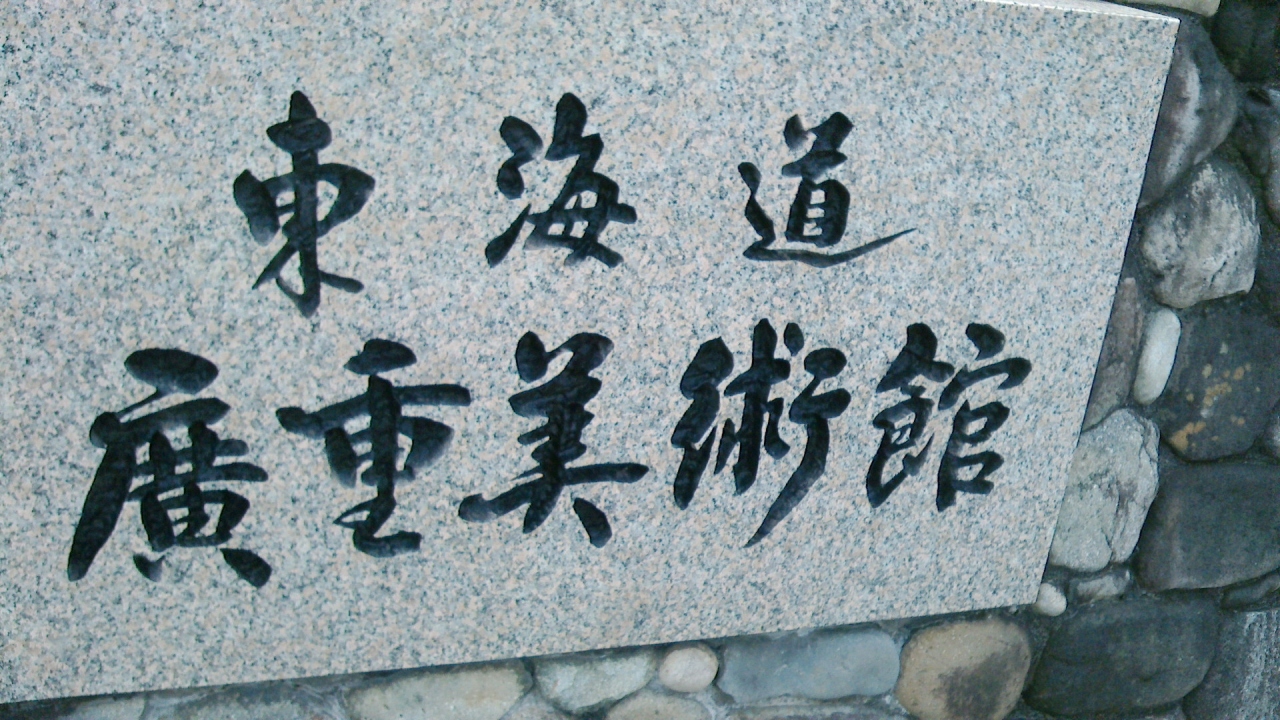 東海道
廣重美術館